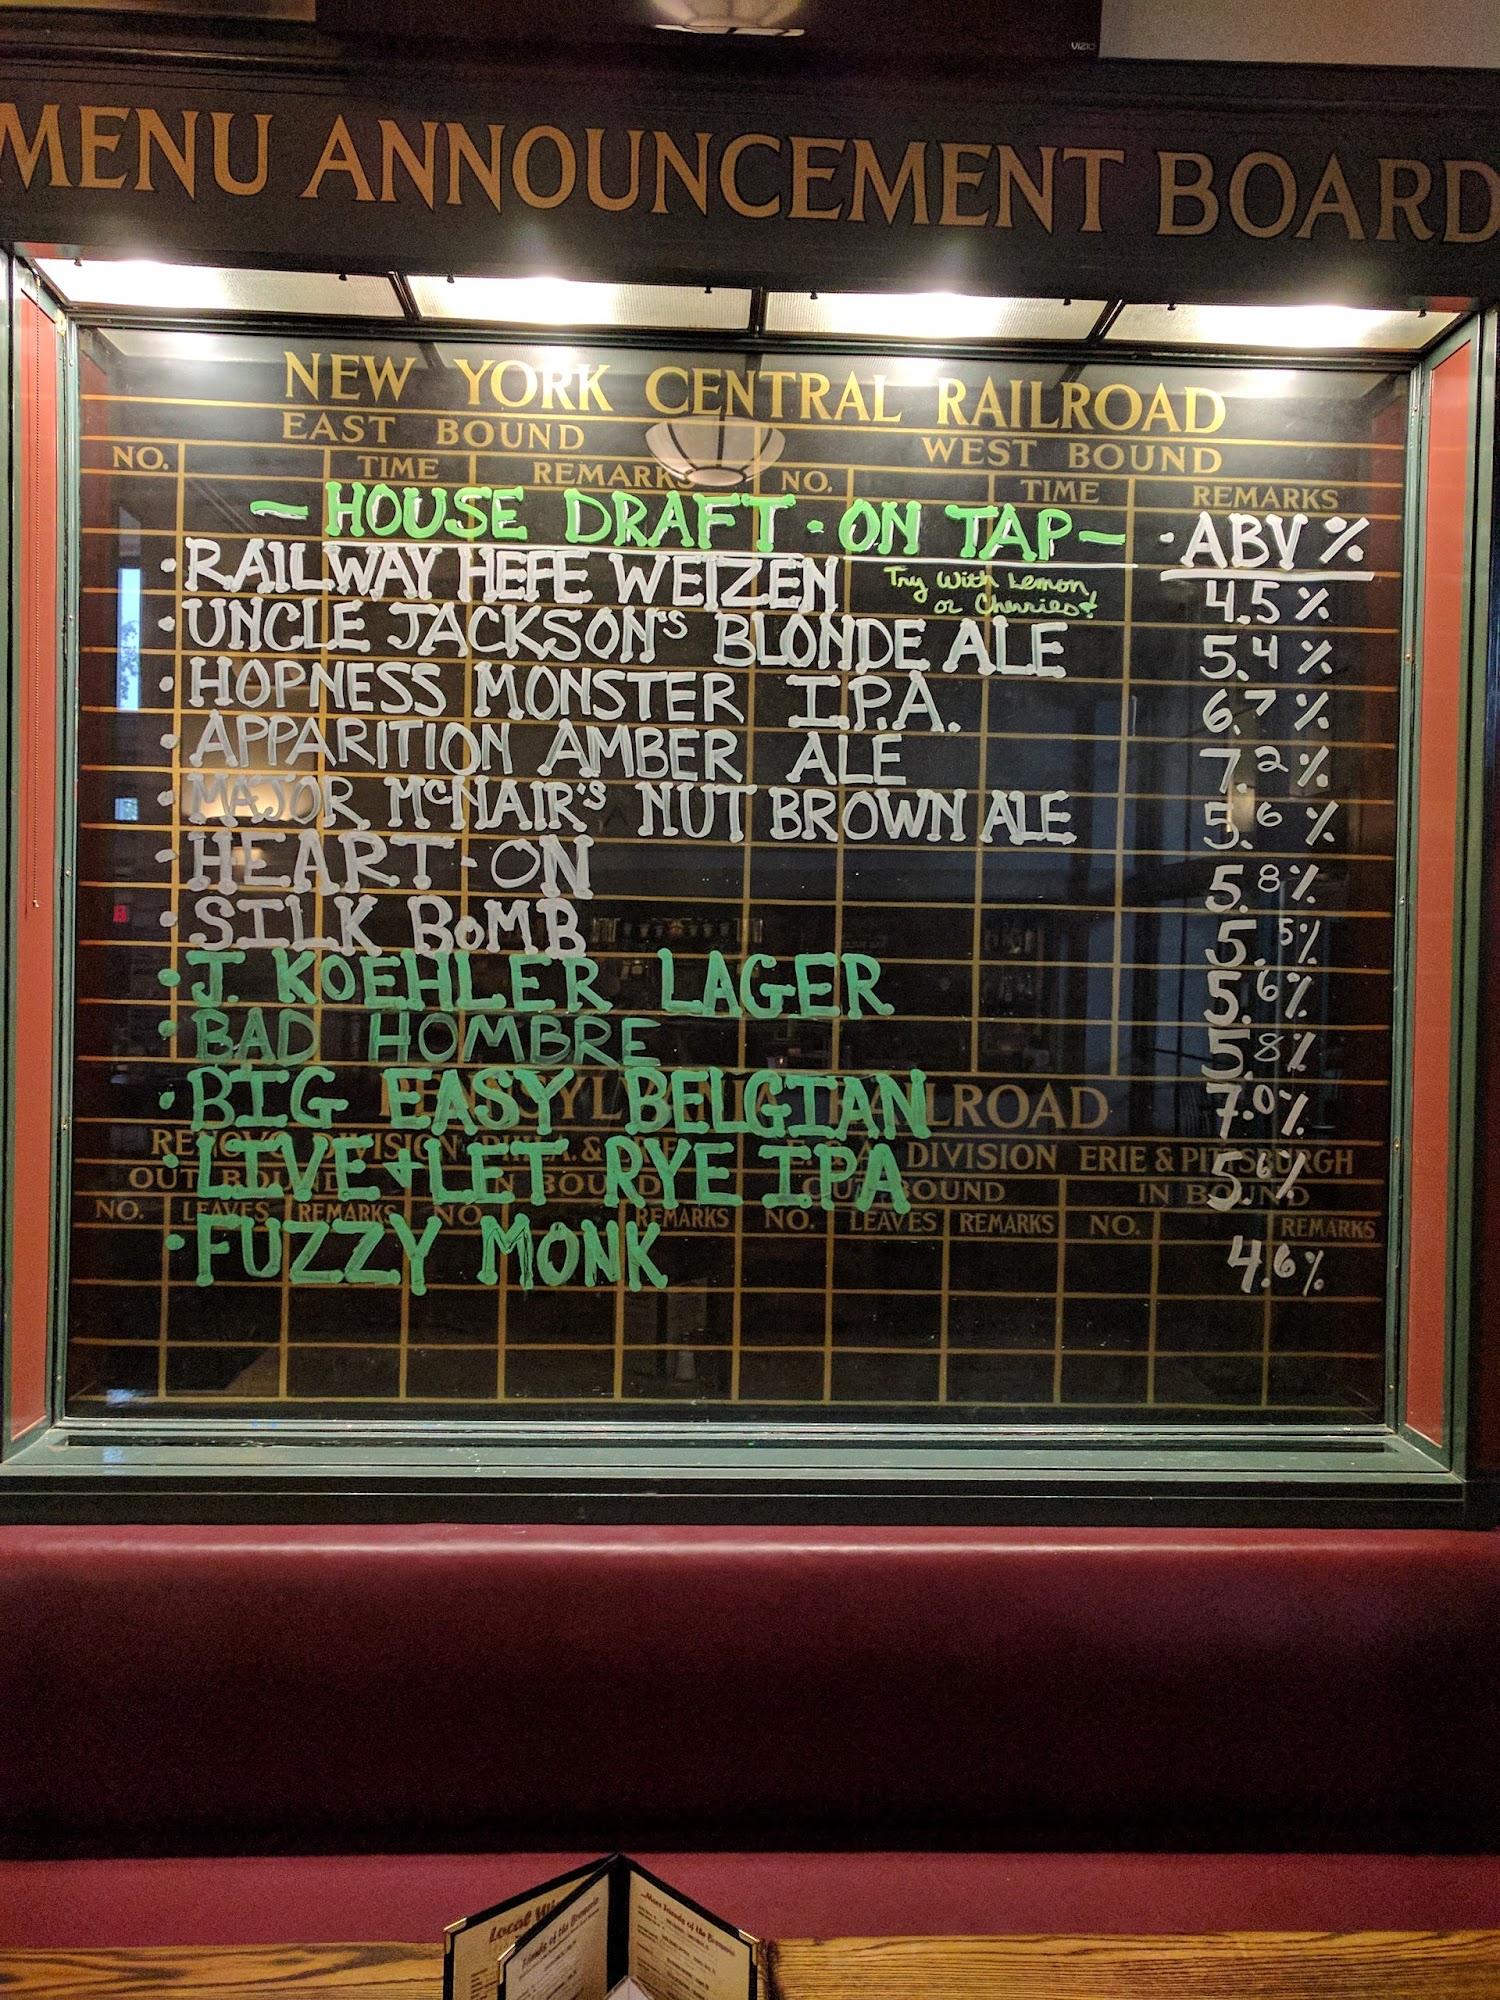 VIZIO
MENU ANNOUNCEMENT BOARD
NEW YORK CENTRAL RAILROAD
EAST BOUND WEST BOUND
NO. TIME REMARKS NO. TIME REMARKS
- HOUSE DRAFT · ON TAP - · ABV %
· RAILWAY HEFE WEIZEN Try With Lemon 4.5%
or Cherries!
· UNCLE JACKSON'S BLONDE ALE 5.4%
· HOPNESS MONSTER I.P.A. 6.7%
· APPARITION AMBER ALE 7.2%
· MAJOR McNAIR'S NUT BROWN ALE 5.6%
· HEART-ON 5.8%
· SILK BOMB 5.5%
· J. KOEHLER LAGER 5.6%
· BAD HOMBRE 5.8%
· BIG EASY BELGIAN 7.0%
RAILROAD
· LIVE & LET RYE IPA 5.6%
RENOVO DIVISION DIVISION ERIE & PITTSBURGH
OUT BOUND IN BOUND OUT BOUND IN BOUND
NO. LEAVES REMARKS NO. REMARKS NO. LEAVES REMARKS NO. REMARKS
· FUZZY MONK 4.6%
Local
Friends of the Brewerie
...More Friends of the Brewerie